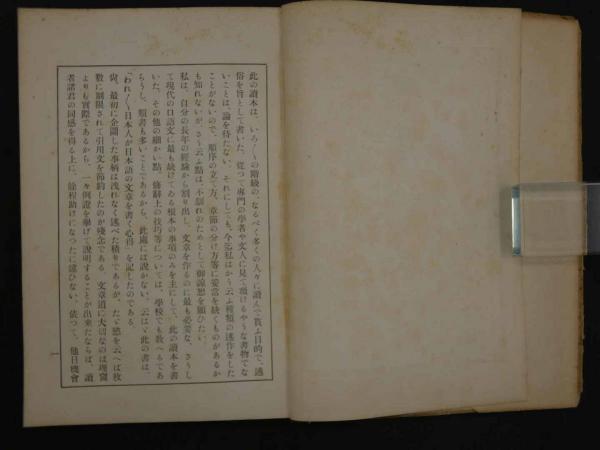 此の讀本は、いろ〳〵の階級の、なるべく多くの人々に讀んで貰ふ目的で、通
俗を旨として書いた。從つて專門の學者や文人に見て頂けるやうな書物でな
いことは、論を待たない。それにしても、今迄私はかう云ふ種類の述作をした
ことがないので、順序の立て方、章節の分け方等に妥當を缺くものがあるか
も知れないが、さう云ふ點は、不馴れのためとして御諒恕を願ひたい。
私は、自分の長年の經驗から割り出し、文章を作るのに最も必要な、さうし
て現代の口語文に最も缺けてゐる根本の事項のみを主にして、此の讀本を書
いた。その他の細かい點、修辭上の技巧等については、學校でも敎へるであ
らうし、類書も多いことであるから、此處には說かない。云はゞ此の書は、
「われ〳〵日本人が日本語の文章を書く心得」を記したのである。
尙、最初に企圖した事柄は洩れなく述べた積りであるが、たゞ憾を云へば枚
數に制限されて引用文を節約したのが殘念である。文章道に大切なのは理窟
よりも實際であるから、一々例證を擧げて說明することが出來たならば、讀
者諸君の同感を得る上に、餘程助けになつたに違ひない。依つて、他日機會
一